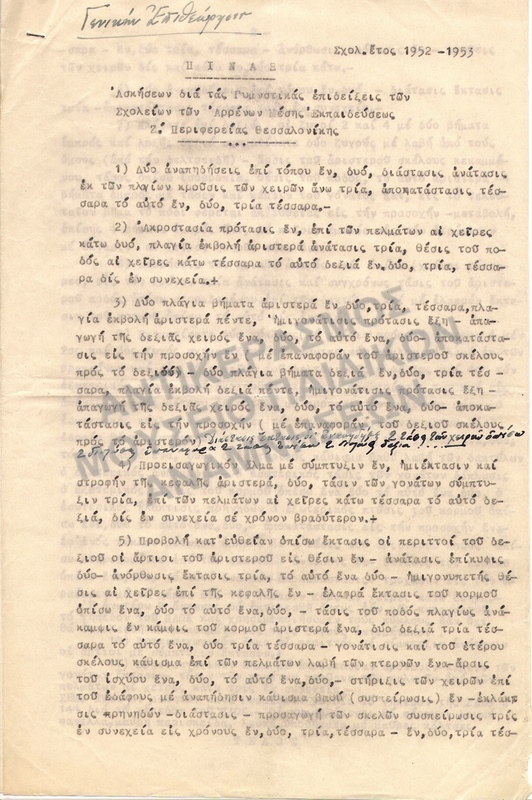 Γενικὴν Ἐπιθεώρησιν
Σχολ.ἔτος 1952 -1953
Π Ι Ν Α Ξ
Ἀσκήσεων διά τάς Γυμναστικάς ἐπιδείξεις τῶν
Σχολείων τῶν Ἀρρένων Μέσης Ἐκπαιδεύσεως
Ζ. Περιφερείας Θεσσαλονίκης
1) Δύο ἀναπηδήσεις ἐπί τόπου ἕν, δυό, διάστασις ἀνάτασις
ἐκ τῶν πλαγίων κροῦσις τῶν χειρῶν ἄνω τρία, ἀποκατάστασις τέσ-
σαρα τό αὐτό ἕν, δύο, τρία τέσσαρα.-
2) Ἀκροστασία πρότασις ἕν, ἐπί τῶν πελμάτων αἱ χεῖρες
κάτω δυό, πλαγία ἐκβολή ἀριστερά ἀνάτασις τρία, θέσις τοῦ πο-
δός αἱ χεῖρες κάτω τέσσαρα τό αὐτό δεξιά ἕν.δύο, τρία, τέσσα-
ρα δίς ἐν συνεχεία.+
3) Δύο πλάγια βήματα ἀριστερά ἕν δύο,τρία, τέσσαρα,πλα-
γία ἐκβολή ἀριστερά πέντε, Ἡμιγονάτισις πρότασις ἕξη- ἀπα-
γωγή τῆς δεξιᾶς χειρός ἕνα, δύο, τό αὐτό ἕνα, δύο- ἀποκατάστα-
σις εἰς τήν προσοχήν ἕν μέ ἐπαναφοράν τοῦ ἀριστεροῦ σκέλους
πρός τό δεξιόδύο - δύο πλάγια βήματα δεξιά ἕν,δύο, τρία τέσ-
σαρα, πλαγία ἐκβολή δεξιά πέντε, ἡμιγονάτισις πρότασις ἕξη -
ἀπαγωγή τῆς δεξιᾶς χειρός ἕνα, δύο, τό αὐτό ἕνα, δύο- ἀποκα-
τάστασις εἰς τήν προσοχήν ἕν μέ ἐπαναφοράν τοῦ δεξιοῦ σκέλους
πρός τό ἀριστερόν
4) Προεισαγωγικόν ἅλμα μέ σύμπτυξιν ἕν, ἡμιέκτασιν καί
στροφήν τῆς κεφαλῆς ἀριστερά, δύο, τάσιν τῶν γονάτων σύμπτυ-
ξιν τρία, ἐπί τῶν πελμάτων αἱ χεῖρες κάτω τέσσαρα τό αὐτό δε-
ξιά, δίς ἐν συνεχεία σέ χρόνον βραδύτερον.+
5) Προβολή κατ'εὐθεῖαν ὀπίσω ἔκτασις οἱ περιττοί τοῦ δε-
ξιοῦ οἱ ἄρτιοι τοῦ ἀριστεροῦ εἰς θέσιν ἕν - ἀνάτασις ἐπίκυψις
δύο- ἀνόρθωσις ἔκτασις τρία, τό αὐτό ἕνα δύο - ἡμιγονυπετής θέ-
σις αἱ χεῖρες ἐπί τῆς κεφαλῆς ἕν - ἐλαφρά ἔκτασις τοῦ κορμοῦ
ὀπίσω ἕνα, δύο τό αὐτό ἕνα,δύο,- τάσις τοῦ ποδός πλαγίως ἀνά-
καμψις ἕν κάμψις τοῦ κορμοῦ ἀριστερά ἕνα, δύο δεξιά τρία τέσ-
σαρα τό αὐτό ἕνα, δύο τρία τέσσαρα - γονάτισις καί τοῦ ἑτέρου
σκέλους κάθισμα ἐπί τῶν πελμάτων λαβή τῶν πτερνῶν ἕνα-ἄρσις
τοῦ ἰσχύου ἕνα, δύο, τό αὐτό ἕνα,δύο,- στήριξις τῶν χειρῶν ἐπί
τοῦ ἐδάφους μέ ἀναπήδησιν κάθισμα βαθύ (συσπείρωσις) ἕν -ἐκλάκτι-
σις πρηνηδόν -διάστασις - προσαγωγή τῶν σκελῶν συσπείρωσις τρίς
ἐν συνεχεία εἰς χρόνους ἕν,δύο, τρία,τέσσαρα - ἕν,δύο,τρία,τέσ-
ΑΝΤΙΚΕΡΑΣΜΟΣ